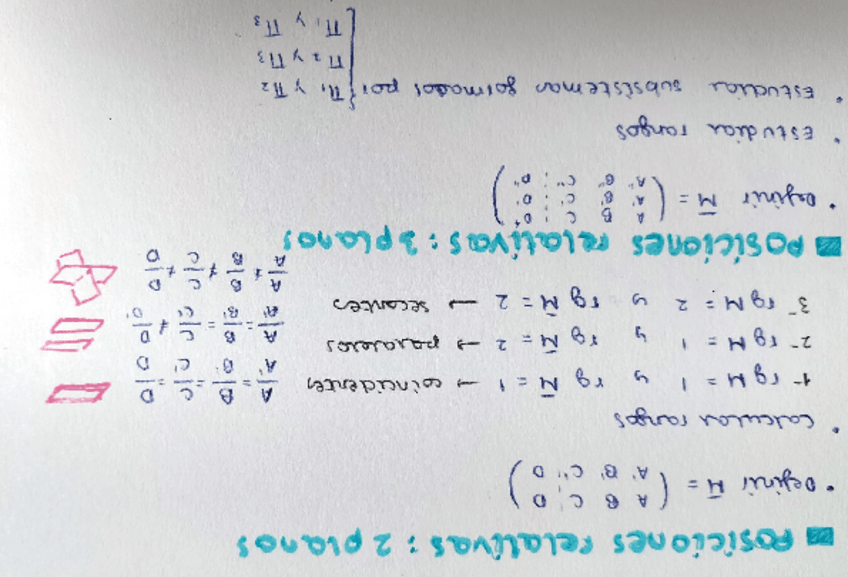 ■ POSICIONES relativas: 2 planos
• Definir M̄ = ( A B C ¦ D
A' B' C' ¦ D' )
• calcular rangos
1- rg M = 1 y rg M̄ = 1 → coincidentes A/A' = B/B' = C/C' = D/D'
2- rg M = 1 y rg M̄ = 2 → paralelos A/A' = B/B' = C/C' ≠ D/D'
3- rg M = 2 y rg M̄ = 2 → secantes A/A' ≠ B/B' ≠ C/C' ≠ D/D'
■ POSICIONES relativas: 3 planos
• Definir M̄ = ( A B C ¦ D
A' B' C' ¦ D'
A'' B'' C'' ¦ D'' )
• Estudiar rangos
• Estudiar subsistemas formados por { π1 y π2
π2 y π3
π1 y π3